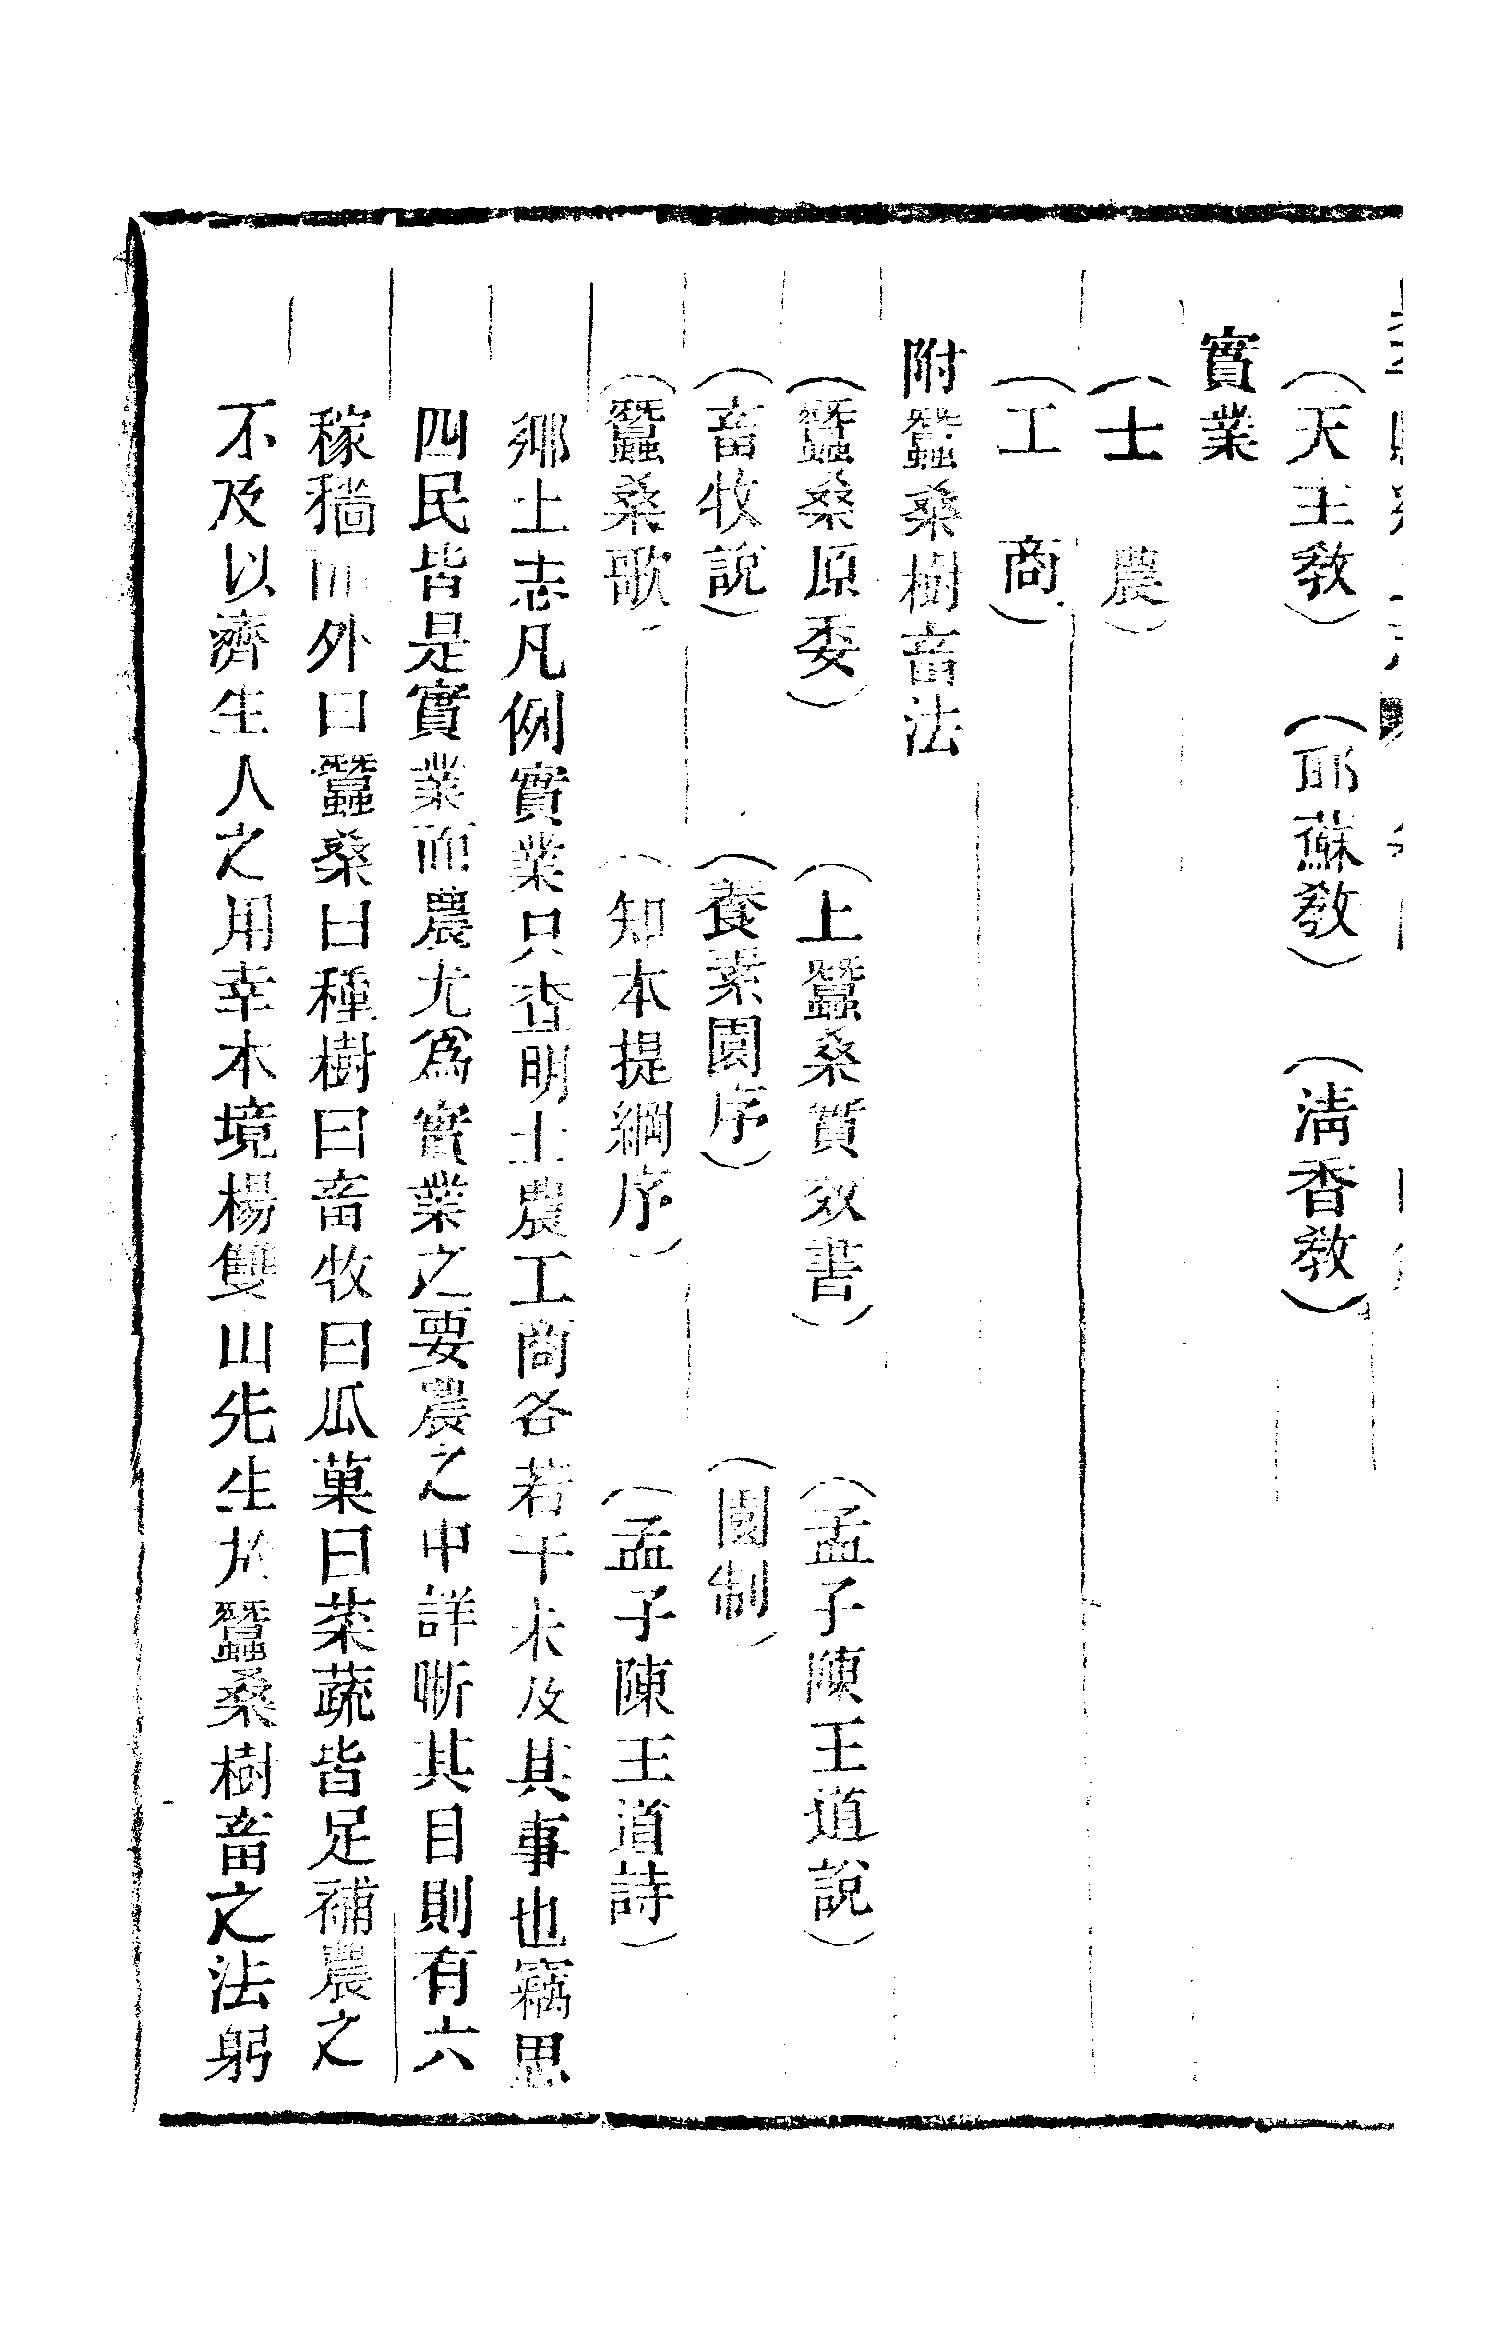 （天主教）　（耶蘇教）　（清香教）
實業
（士　農）
（工　商）
附蠶桑樹畜法
（蠶桑原委）　（上蠶桑實效書）　（孟子陳王道說）
（畜牧說）　（養素園序）　（園制）
（蠶桑歌）　（知本提綱序）　（孟子陳王道詩）
鄉土志凡例實業只查明士農工商各若干未及其事也竊思
四民皆是實業而農尤爲實業之要農之中詳晰其目則有六
稼穡而外曰蠶桑曰種樹曰畜牧曰瓜菓曰菜蔬皆足補農之
不及以濟生人之用幸本境楊雙山先生於蠶桑樹畜之法躬